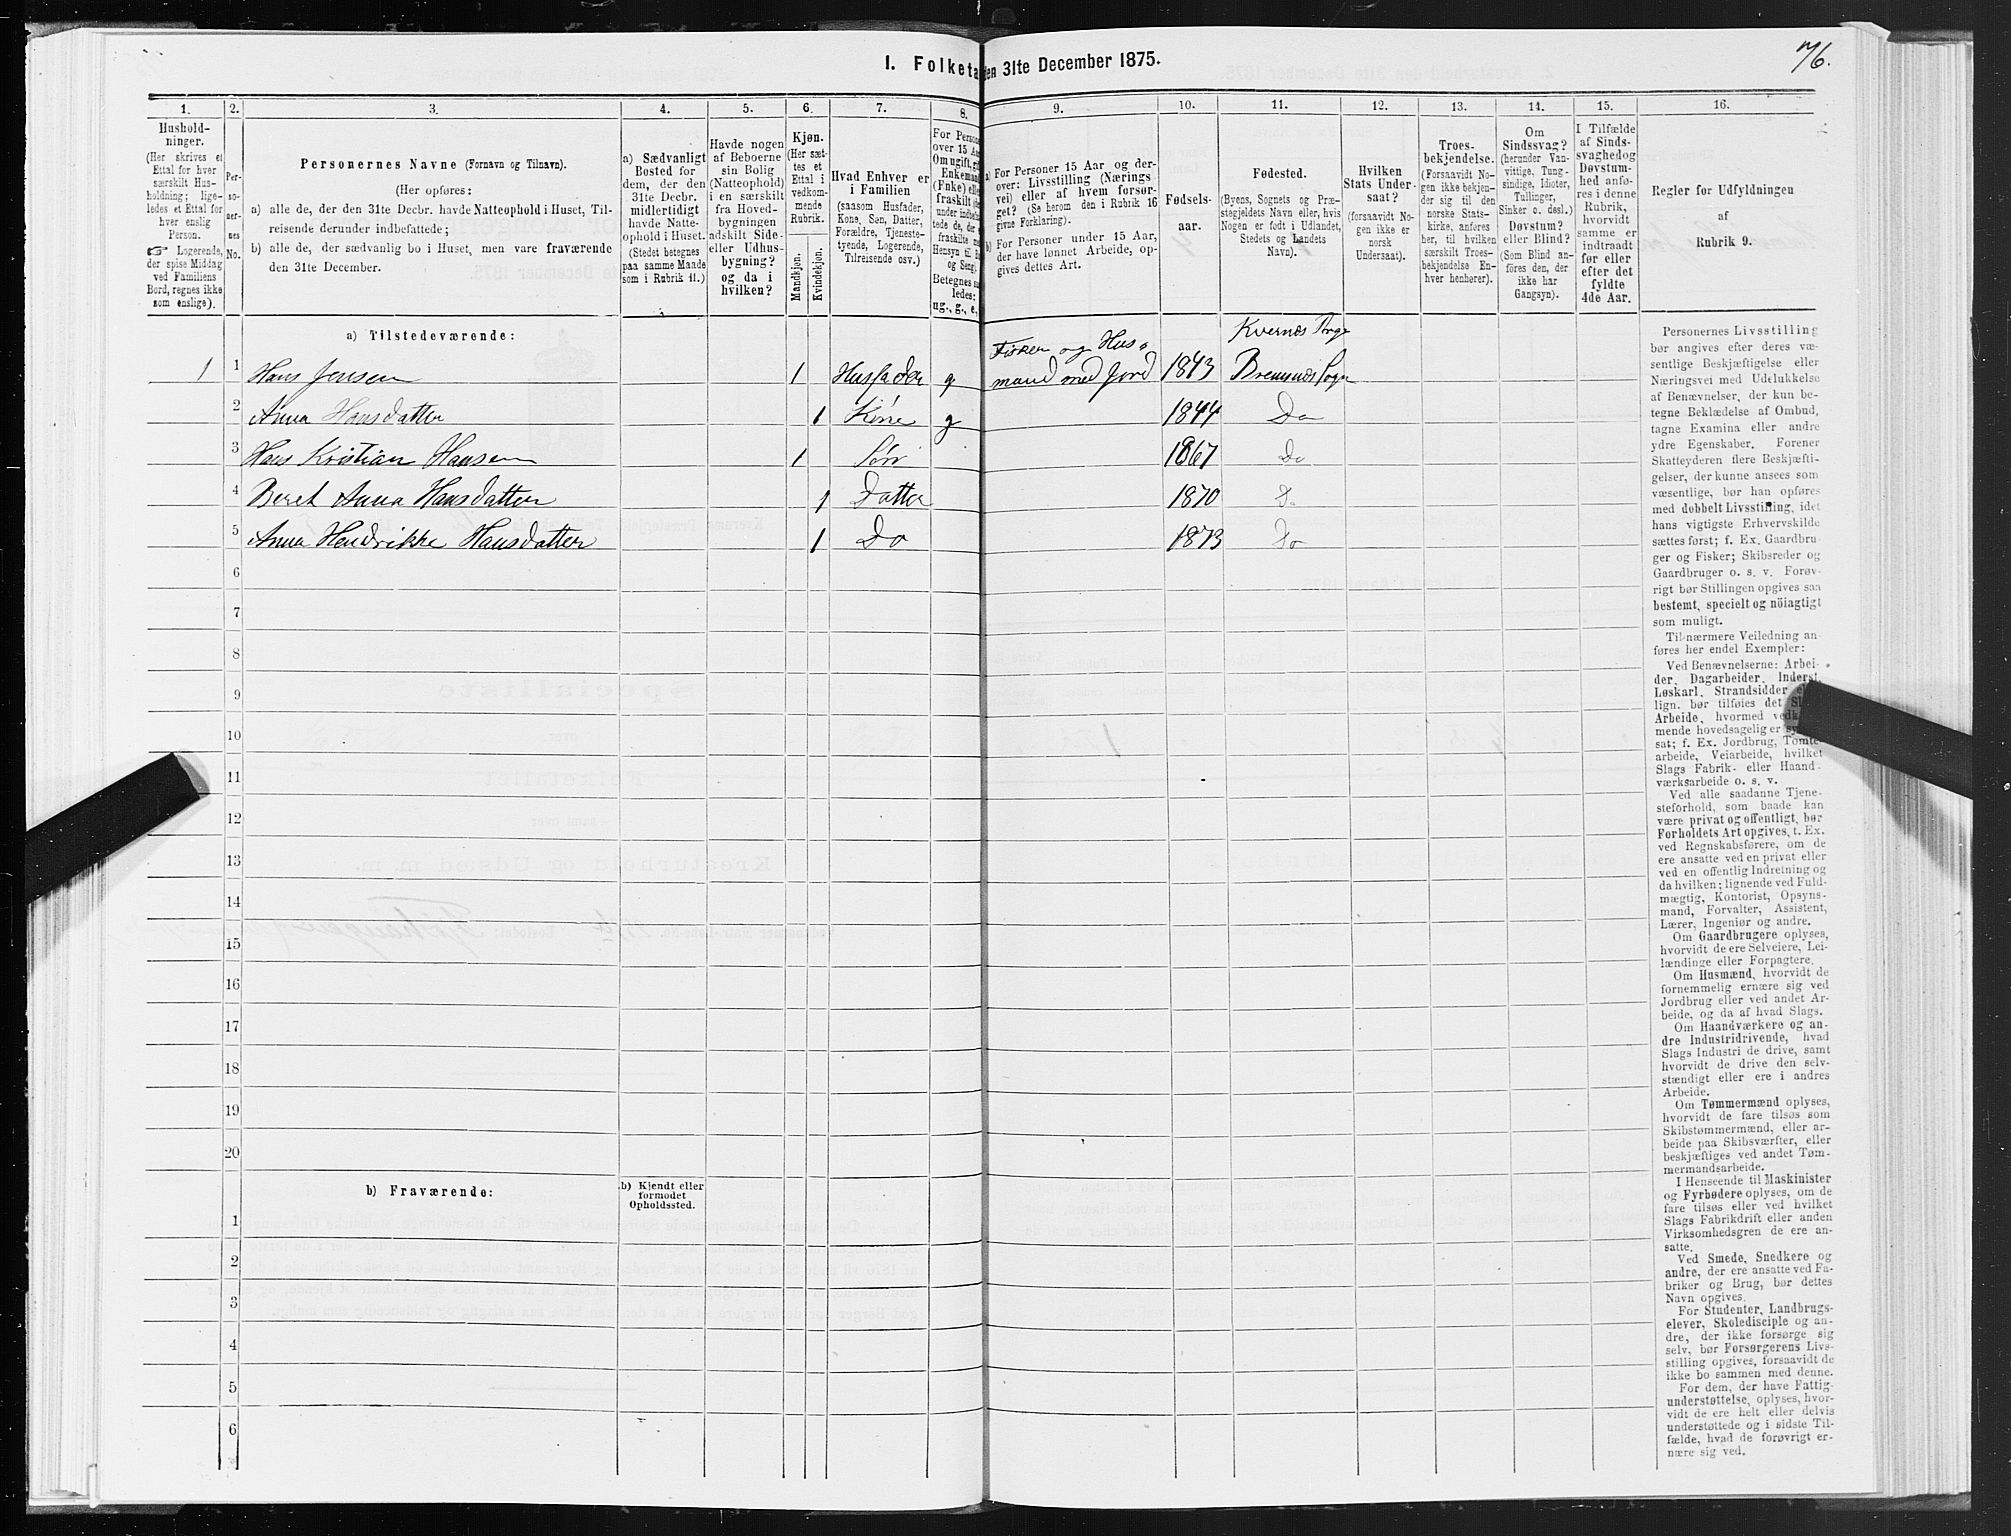 76.
I. Folketa
den 31te December 1875.
1. 2. 3. 4. 5. 6. 7. 8. 9. 10. 11. 12. 13. 14. 15. 16.
Hushold-
ninger.
(Her skrives et
Ettal for hver
særskilt Hus-
holdning; lige-
ledes et Ettal for
hver enslig
Person.
☞ Logerende,
der spise Middag
ved Familiens
Bord, regnes ikke
som enslige).
Per-
so-
ner-
nes
No.
Personernes Navne (Fornavn og Tilnavn).
(Her opføres:
a) alle de, der den 31te Decbr. havde Natteophold i Huset, Til-
reisende derunder indbefattede;
b) alle de, der sædvanlig bo i Huset, men vare fraværende
den 31te December.
a) Sædvanligt
Bosted for
dem, der den
31te Decbr.
midlertidigt
havde Natte-
ophold i Huset.
(Stedet betegnes
paa samme Maade
som i Rubrik 11.)
Havde nogen
af Beboerne
sin Bolig
(Natteophold)
i en særskilt
fra Hoved-
bygningen
adskilt Side-
eller Udhus-
bygning?
og da i
hvilken?
Kjøn.
(Her sæt-
tes et
Ettal i
vedkom-
mende
Rubrik.
Mandkjøn.
Kvindekjøn.
Hvad Enhver er
i Familien
(saasom Husfader,
Kone, Søn, Datter,
Forældre, Tjeneste-
tyende, Logerende,
Tilreisende osv.)
For Perso
over 15 Aa
Om ugift, g
Enkeman
(Fnke) elle
fraskilt (h
under indbe
tede de, de
fraskilte
Hensyn til B
og Seng
Betegnes s
ledes:
ug., g., e.,
a) For Personer 15 Aar og der-
over: Livsstilling (Nærings
vei) eller af hvem forsør-
get? (Se herom den i Rubrik 16
givne Forklaring).
b) For Personer under 15 Aar,
der have lønnet Arbeide, op-
gives dettes Art.
Fødsels-
aar.
Fødested.
(Byens, Sognets og Præ-
stegjeldets Navn eller, hvis
Nogen er født i Udlandet,
Stedets og Landets
Navn).
Hvilken
Stats Under-
saat?
(forsaavidt No-
gen ikke er
norsk
Undersaat).
Troes-
bekjendelse.
(Forsaavidt No-
gen ikke bekjen-
der sig til den
norske Stats-
kirke, anføres
her, til hvilken
særskilt Troes-
bekjendelse En-
hver henhører).
Om
Sindssvag?
(herunder Van-
vittige, Tung-
sindige, Idioter,
Tullinger,
Sinker o. desl.)
Døvstum?
eller Blind?
(Som Blind an-
føres den, der
ikke har
Gangsyn).
I Tilfælde
af Sinds-
svaghed og
Døvstum-
hed anfø-
res i denne
Rubrik,
hvorvidt
samme er
indtraadt
før eller
efter det
fyldte
4de Aar.
Regler for Udfyldningen
af
Rubrik 9.
a) Tilstedeværende:
1 1 Hans Jensen 1 Husfader g Fisker og Hus-
mand med Jord 1843 Kvernæs Prge
Bremsnæs Sogn
2 Anna Hansdatter 1 Kone g 1844 Do
3 Hans Kristian Hansen 1 Søn 1867 Do
4 Beret Anna Hansdatter 1 Datter 1870 Do
5 Anna Hendrikke Hansdatter 1 Do 1873 Do
6
7
8
9
10
11
12
13
14
15
16
17
18
19
20
b) Fraværende:
b) Kjendt eller
formodet
Opholdssted.
1
2
3
4
5
6
Personernes Livsstilling
bør angives efter deres væ-
sentlige Beskjæftigelse eller
Næringsvei med Udelukkelse
af Benævnelser, der kun be-
tegne Beklædelse af Ombud,
tagne Examina eller andre
ydre Egenskaber. Forener
Skatteyderen flere Beskjæfti-
gelser, der kunne ansees som
væsentlige, bør han opføres
med dobbelt Livsstilling, idet
hans vigtigste Erhvervskilde
sættes først; f. Ex. Gaardbru-
ger og Fisker; Skibsreder og
Gaardbruger o. s. v. Forøv-
rigt bør Stillingen opgives saa
bestemt, specielt og nöiagtigt
som muligt.
Til nærmere Veiledning an-
føres her endel Exempler:
Ved Benævnelserne: Arbei-
der, Dagarbeider, Inderst,
Løskarl, Strandsidder
lign. bør tilføies det
Arbeide, hvormed
mende hovedsagelig er
sat; f. Ex. Jordbrug, Tømte
arbeide, Veiarbeide, hvilket
Slags Fabrik- eller Haand-
værksarbeide o. s. v.
Ved alle saadanne Tjene-
steforhold, som baade kan
være privat og offentligt, bør
Forholdets Art opgives, t. Ex.
ved Regnskabsførere, om de
ere ansatte ved en privat eller
ved en offentlig Indretning og
da hvilken; lignende ved Fuld-
mægtig, Kontorist, Opsyns-
mand, Forvalter, Assistent,
Lærer, Ingeniør og andre.
Om Gaardbrugere oplyses,
hvorvidt de ere Selveiere, Lei-
lændinge eller Forpagtere.
Om Husmænd, hvorvidt de
fornemmelig ernære sig ved
Jordbrug eller ved andet Ar-
beide, og da af hvad Slags.
Om Haandværkere og an-
dre Industridrivende, hvad
Slags Industri de drive, samt
hvorvidt de drive den selv-
stændigt eller ere i andres
Arbeide.
Om Tømmermænd oplyses,
hvorvidt de fare tilsøs som
Skibstømmermænd, eller ar-
beide paa Skibsværfter, eller
beskjæftiges ved andet Tøm-
mermandsarbeide.
I Henseende til Maskinister
og Fyrbødere oplyses, om de
fare tilsøs eller ved hvilket
Slags Fabrikdrift eller anden
Virksomhedsgren de ere an-
satte.
Ved Smede, Snedkere og
andre, der ere ansatte ved Fa-
briker og Brug, bør dettes
Navn opgives.
For Studenter, Landbrugs-
elever, Skoledisciple og an-
dre, der ikke forsørge sig
selv, bør Forsørgerens Livs-
stilling opgives, forsaavidt de
ikke bo sammen med denne.
For dem, der have Fattig-
understøttelse, oplyses, hvor-
vidt de ere helt eller delvis
understøttede og i sidste Til-
fælde, hvad de forøvrigt er-
nære sig ved.